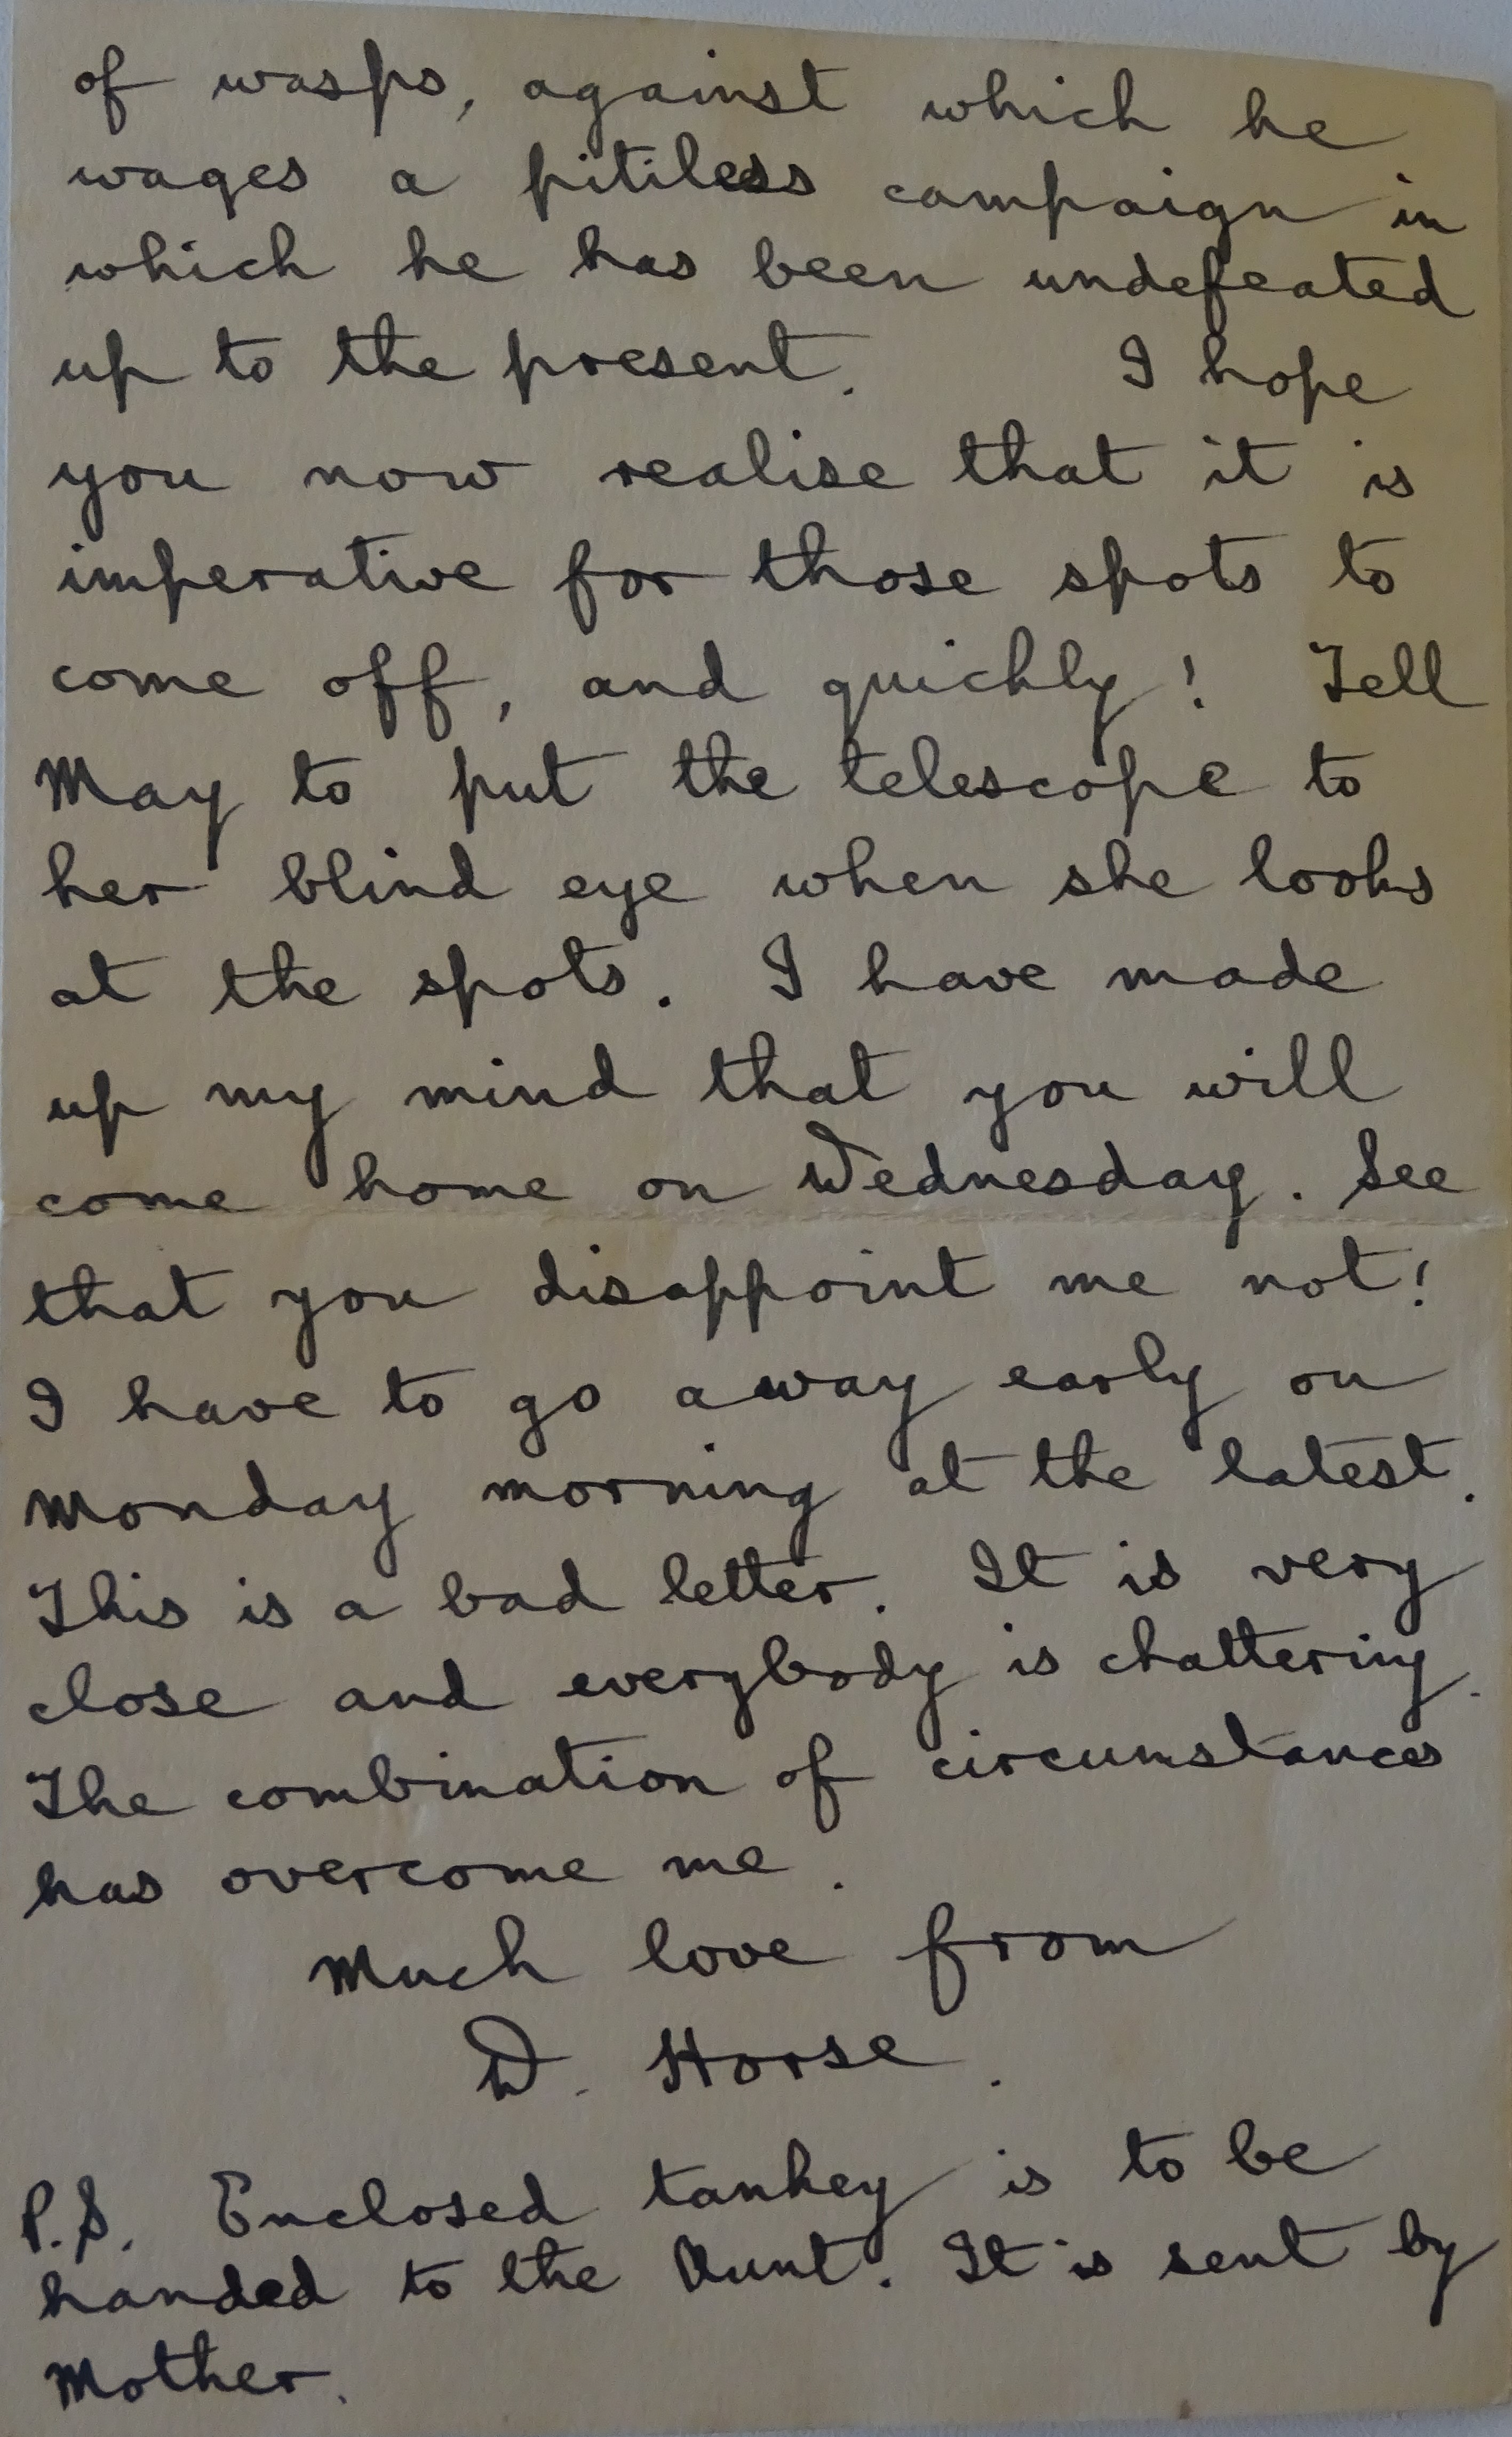 of wasps, against which he
wages a pitiless campaign in
which he has been undefeated
up to the present. I hope
you now realise that it is
imperative for those spots to
come off, and quickly! Tell
May to put the telescope to
her blind eye when she looks
at the spots. I have made
up my mind that you will
come home on Wednesday. See
that you disappoint me not!
I have to go away early on
Monday morning at the latest.
This is a bad letter. It is very
close and everybody is chattering.
The combination of circumstances
has overcome me.
Much love from
D. Horse.
P.S. Enclosed tankey is to be
handed to the Aunt. It is sent by
Mother.